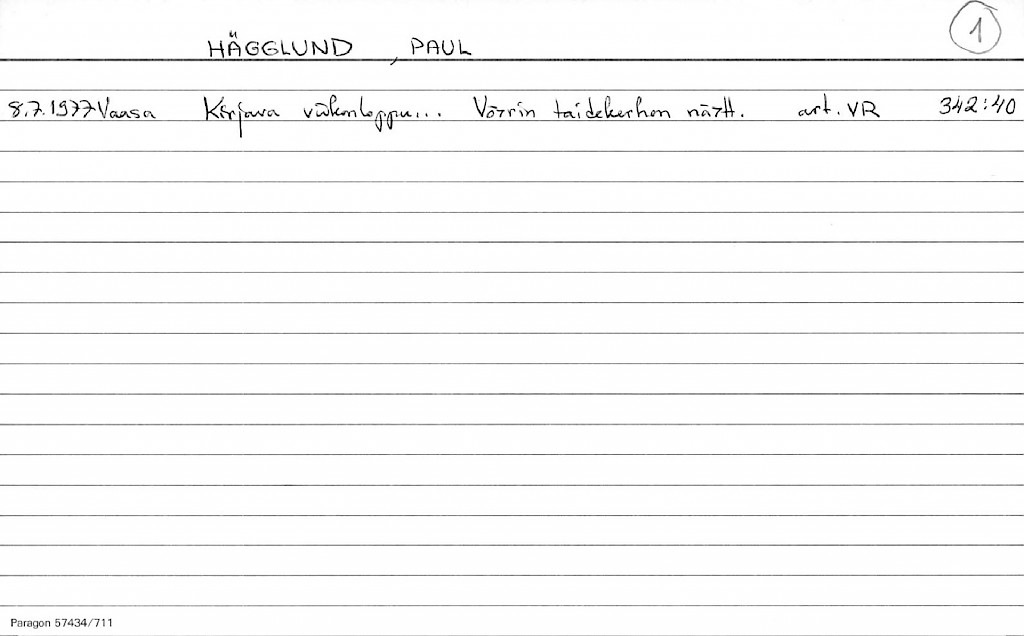 1
HÄGGLUND, PAUL
8.7.1977 Vaasa Kirjava viikonloppu... Vöyrin taidekerhon näytt. art. VR 342:40
Paragon 57434/711